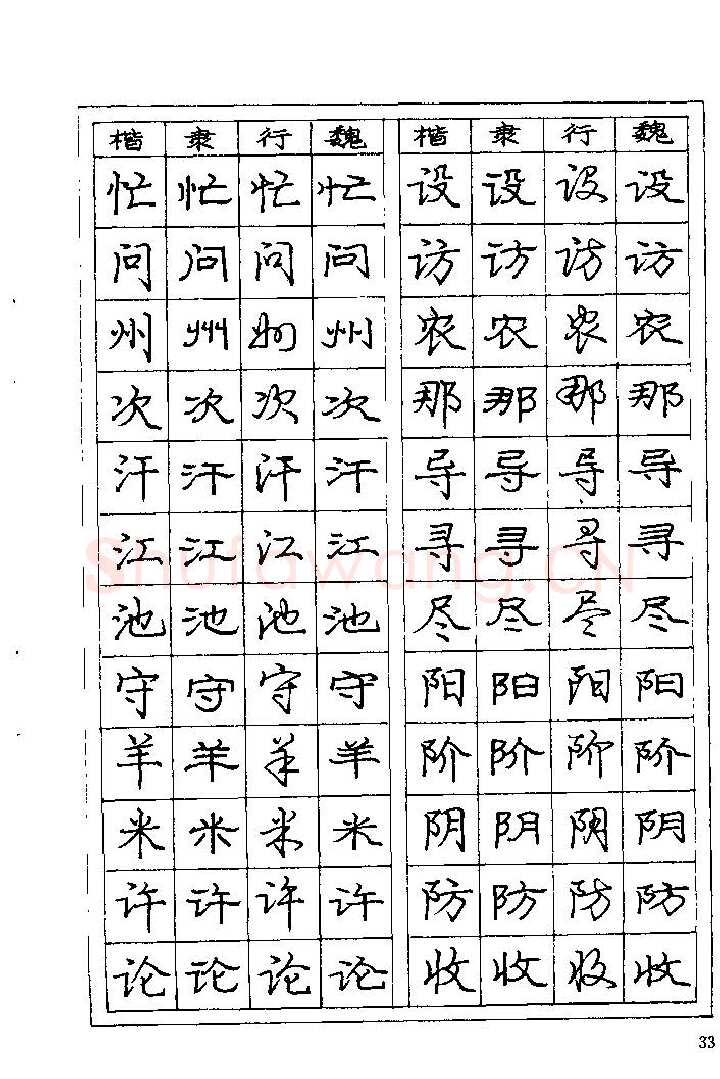 楷 隶 行 魏 楷 隶 行 魏
忙 忙 忙 忙 设 设 设 设
问 问 问 问 访 访 访 访
州 州 州 州 农 农 农 农
次 次 次 次 那 那 那 那
汗 汗 汗 汗 导 导 导 导
江 江 江 江 寻 寻 寻 寻
池 池 池 池 尽 尽 尽 尽
守 守 守 守 阳 阳 阳 阳
羊 羊 羊 羊 阶 阶 阶 阶
米 米 米 米 阴 阴 阴 阴
许 许 许 许 防 防 防 防
论 论 论 论 收 收 收 收
Shufawang.CN
33